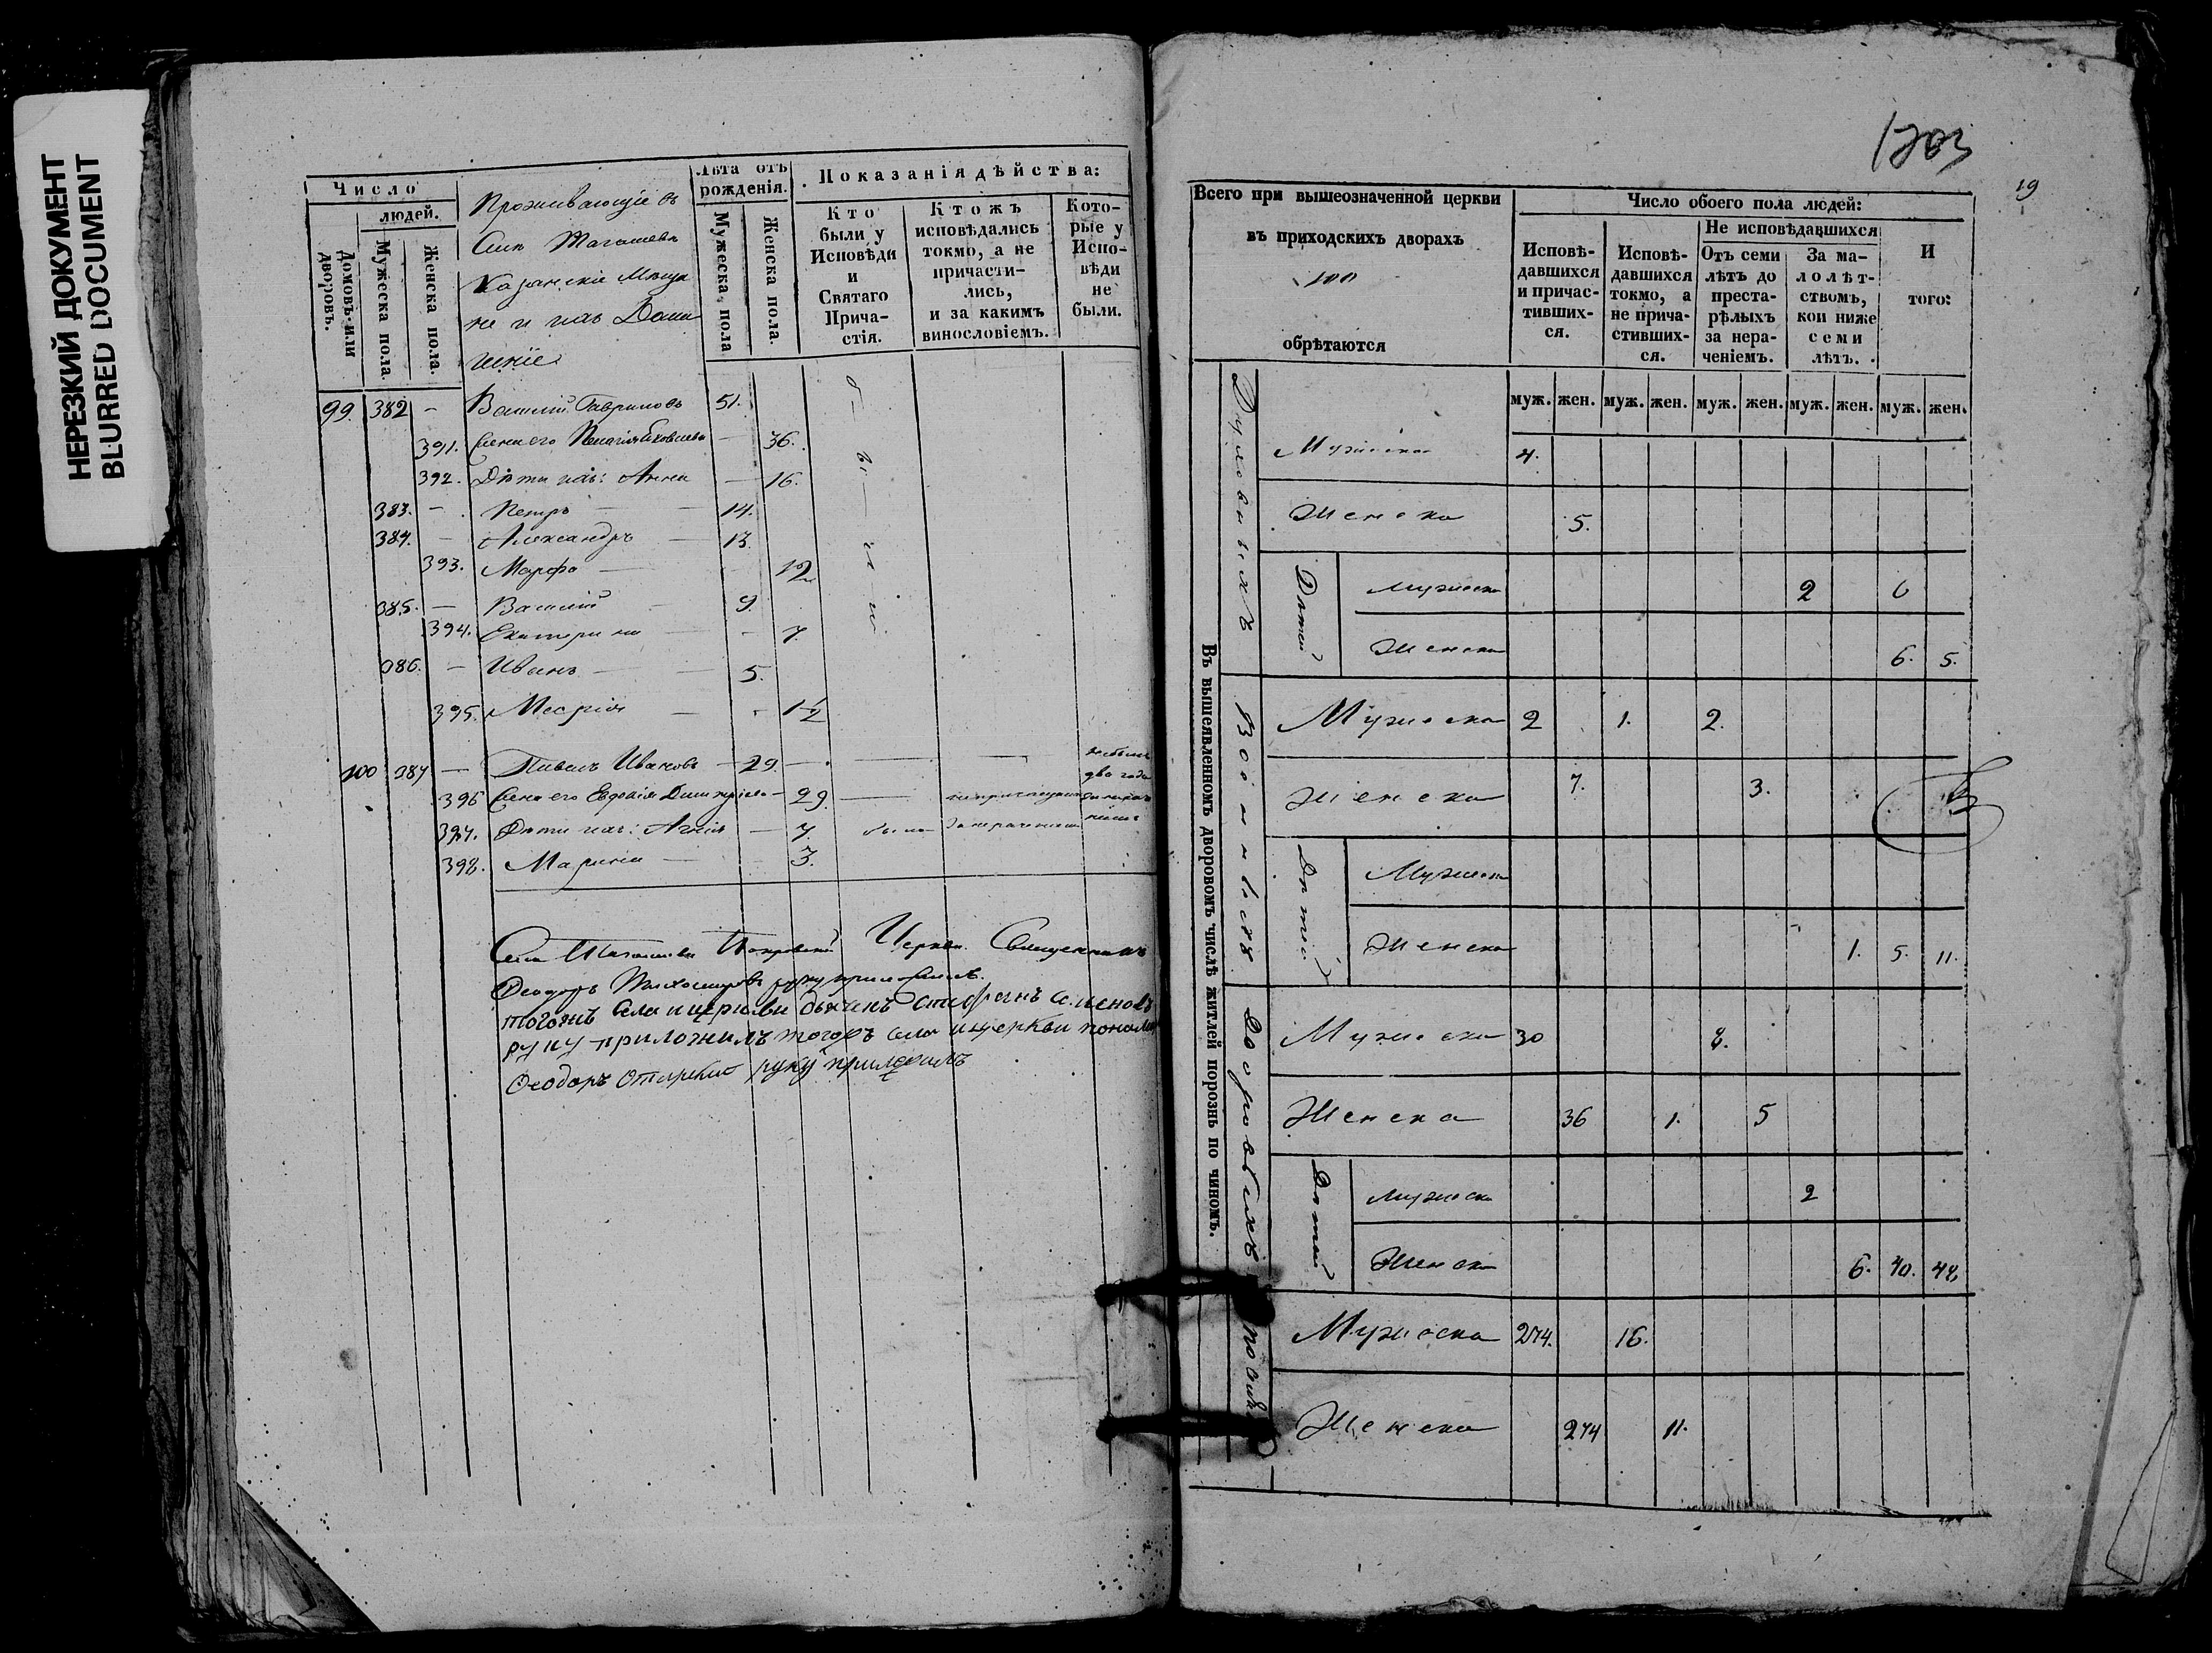 НЕРЕЗКИЙ ДОКУМЕНТ
BLURRED DOCUMENT
Число
людей.
Домовъ или дворовъ.
Мужеска пола.
Женска пола.
Проживающіе въ
Казанскіе Мѣща
не и ихъ Дома
шніе
Лѣта отъ рожденія.
Мужеска пола
Женска пола.
Показанія дѣйства:
Кто были у Исповѣди и Святаго Прича-стія.
Ктожъ исповѣдались токмо, а не причасти-лись, и за какимъ винословіемъ.
Кото-рые у Испо-вѣди не были.
99. 382 – Василій Гавриловъ 51.
391. Жена его Пелагія Яковлева – 36.
392. Дѣти ихъ: Анна – 16.
383. – Петръ – 14.
384. – Александръ – 13.
393. Марфа – 12
385. – Василій 9.
394. Екатерина – 7.
386. – Иванъ – 5.
395. Марія – 1½
были
100 387 – Павелъ Ивановъ – 29. –
396 Жена его Евдокія Димитріева – 29.
397. Дѣти ихъ: – 7.
398. 3.
два года
Покровской Церкви Священникъ
Ѳеодоръ руку приложилъ.
тогожъ села и церкви Стефанъ Семеновъ
руку приложилъ тогожъ села и церкви понома
Ѳеодоръ руку приложилъ
1203
19
Всего при вышеозначенной церкви
въ приходскихъ дворахъ
100
обрѣтаются
Число обоего пола людей:
Исповѣ-давшихся и причас-тивших-ся.
Исповѣ-давшихся токмо, а не прича-стивших-ся.
Не исповѣдавшихся
Отъ семи лѣтъ до преста-рѣлыхъ за нера-ченіемъ.
За ма-лолѣт-ствомъ, кои ниже семи лѣтъ.
И того:
муж. жен. муж. жен. муж. жен. муж. жен. муж. жен.
Въ вышеявленномъ дворовомъ числѣ житлей порознь по чиномъ.
Духовныхъ
Мужеска 4.
Женска 5.
Дѣтей
Мужеска 2
Женска 6. 5.
Военныхъ
Мужеска 2 1. 2.
Женска 7. 3.
Дѣтей
Мужеска
Женска 1. 5. 11.
Дворовыхъ
Мужеска 30 8.
Женска 36 1. 5
Дѣтей
Мужеска 2
Женска 6. 40. 48
Мужеска 274. 16.
Женска 274 11.